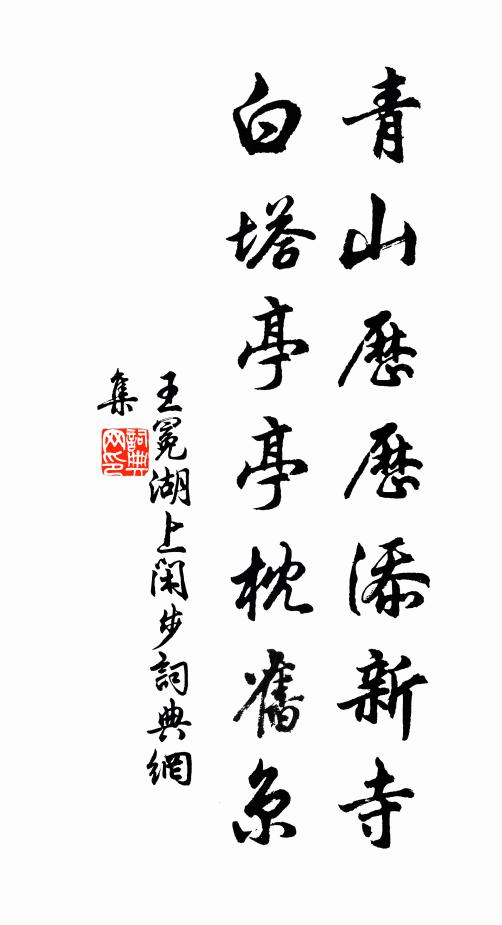 青山歷歷添新寺
白塔亭亭枕舊京
王冕湖上閑步詞典網
集
詞典
网印